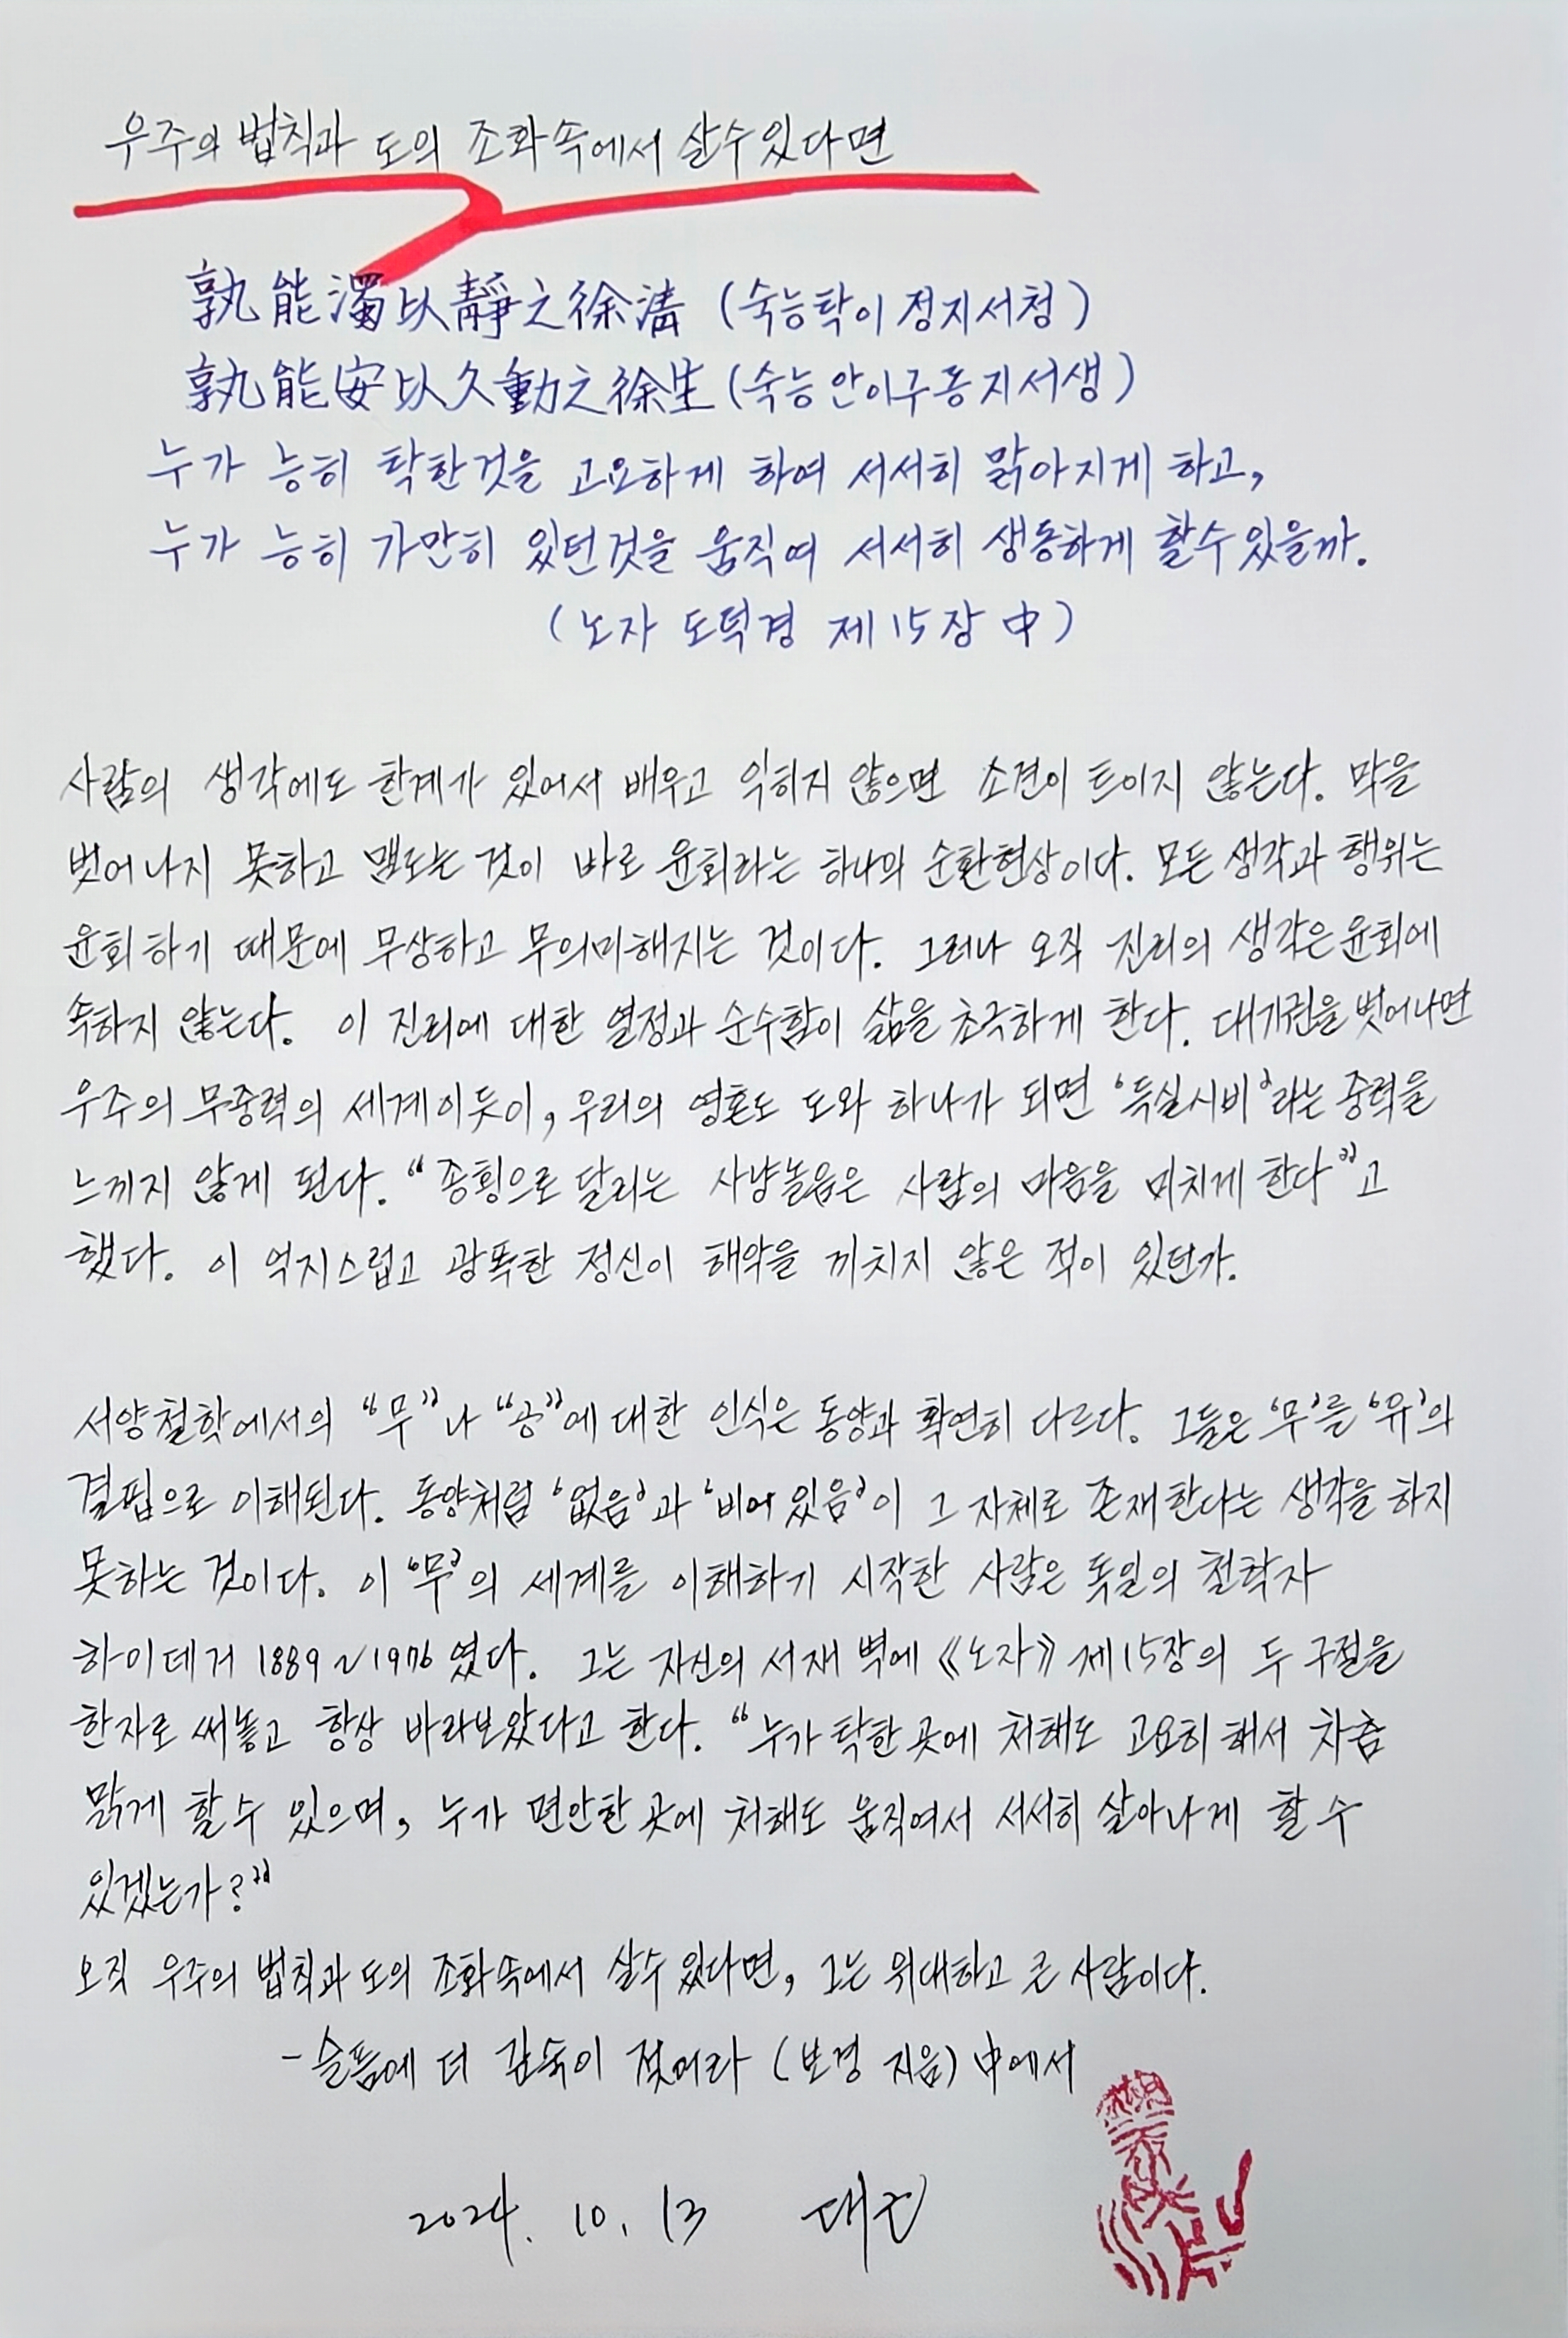 우주의 법칙과 도의 조화속에서 살수있다면
孰能濁以靜之徐淸 (숙능탁이정지서청)
孰能安以久動之徐生 (숙능안이구동지서생)
누가 능히 탁한것을 고요하게 하여 서서히 맑아지게 하고,
누가 능히 가만히 있던것을 움직여 서서히 생동하게 할수있을까.
(노자 도덕경 제15장 中)
사람의 생각에도 한계가 있어서 배우고 익히지 않으면 소견이 트이지 않는다. 막을
벗어나지 못하고 맴도는 것이 바로 윤회라는 하나의 순환현상이다. 모든 생각과 행위는
윤회하기 때문에 무상하고 무의미해지는 것이다. 그러나 오직 진리의 생각은 윤회에
속하지 않는다. 이 진리에 대한 열정과 순수함이 삶을 초극하게 한다. 대기권을 벗어나면
우주의 무중력의 세계이듯이, 우리의 영혼도 도와 하나가 되면 '득실시비'라는 중력을
느끼지 않게 된다. "종횡으로 달리는 사냥놀음은 사람의 마음을 미치게 한다"고
했다. 이 억지스럽고 광폭한 정신이 해악을 끼치지 않은 적이 있던가.
서양철학에서의 "무"나 "공"에 대한 인식은 동양과 확연히 다르다. 그들은 '무'를 '유'의
결핍으로 이해된다. 동양처럼 '없음'과 '비어있음'이 그 자체로 존재한다는 생각을 하지
못하는 것이다. 이 '무'의 세계를 이해하기 시작한 사람은 독일의 철학자
하이데거 1889~1976 였다. 그는 자신의 서재 벽에 《노자》 제15장의 두 구절을
한자로 써놓고 항상 바라보았다고 한다. "누가 탁한 곳에 처해도 고요히 해서 차츰
맑게 할수 있으며, 누가 편안한 곳에 처해도 움직여서 서서히 살아나게 할 수
있겠는가?"
오직 우주의 법칙과 도의 조화속에서 살수 있다면, 그는 위대하고 큰 사람이다.
- 슬픔에 더 깊숙이 젖어라 (보경 지음) 中에서
2024. 10. 13